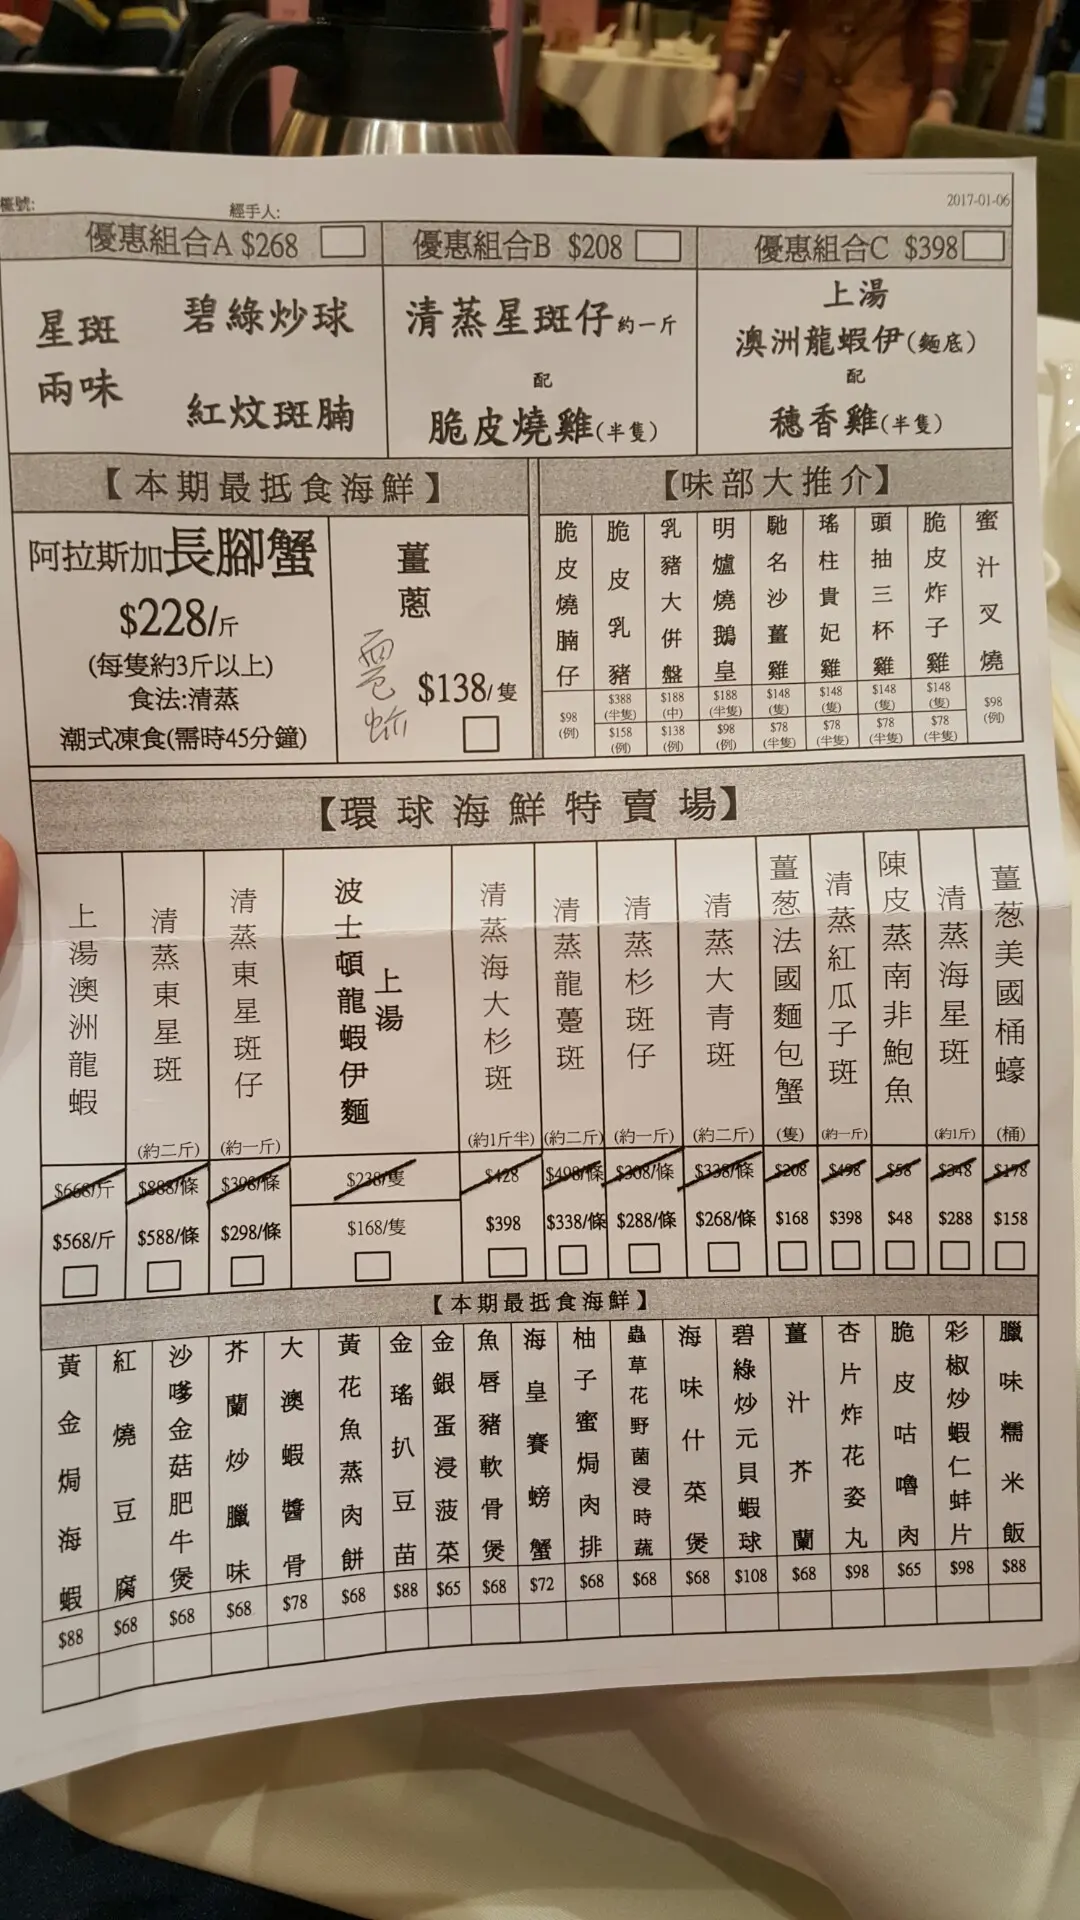 帳號:
經手人:
2017-01-06
優惠組合A $268
星斑兩味
碧綠炒球
紅炆斑腩
優惠組合B $208
清蒸星斑仔約一斤
配
脆皮燒雞(半隻)
優惠組合C $398
上湯
澳洲龍蝦伊(麵底)
配
穗香雞(半隻)
【本期最抵食海鮮】
阿拉斯加長腳蟹
$228/斤
(每隻約3斤以上)
食法:清蒸
潮式凍食(需時45分鐘)
薑蔥
麵包蟹
$138/隻
【味部大推介】
脆皮燒腩仔 $98(例)
脆皮乳豬 $388(半隻) $158(例)
乳豬大併盤 $188(中) $138(例)
明爐燒鵝皇 $188(半隻) $98(例)
馳名沙薑雞 $148(隻) $78(半隻)
瑤柱貴妃雞 $148(隻) $78(半隻)
頭抽三杯雞 $148(隻) $78(半隻)
脆皮炸子雞 $148(隻) $78(半隻)
蜜汁叉燒 $98(例)
【環球海鮮特賣場】
上湯澳洲龍蝦 $668/斤 $568/斤
清蒸東星斑 (約二斤) $888/條 $588/條
清蒸東星斑仔 (約一斤) $398/條 $298/條
上湯波士頓龍蝦伊麵 $238/隻 $168/隻
清蒸海大杉斑 (約1斤半) $428 $398
清蒸龍躉斑 (約二斤) $498/條 $338/條
清蒸杉斑仔 (約一斤) $308/條 $288/條
清蒸大青斑 (約二斤) $338/條 $268/條
薑葱法國麵包蟹 (隻) $208 $168
清蒸紅瓜子斑 (約一斤) $498 $398
陳皮蒸南非鮑魚 $58 $48
清蒸海星斑 (約1斤) $348 $288
薑葱美國桶蠔 (桶) $178 $158
【本期最抵食海鮮】
黃金焗海蝦 $88
紅燒豆腐 $68
沙嗲金菇肥牛煲 $68
芥蘭炒臘味 $68
大澳蝦醬骨 $78
黃花魚蒸肉餅 $68
金瑤扒豆苗 $88
金銀蛋浸菠菜 $65
魚唇豬軟骨煲 $68
海皇賽螃蟹 $72
柚子蜜焗肉排 $68
蟲草花野菌浸時蔬 $68
海味什菜煲 $68
碧綠炒元貝蝦球 $108
薑汁芥蘭 $68
杏片炸花姿丸 $98
脆皮咕嚕肉 $65
彩椒炒蝦仁蚌片 $98
臘味糯米飯 $88